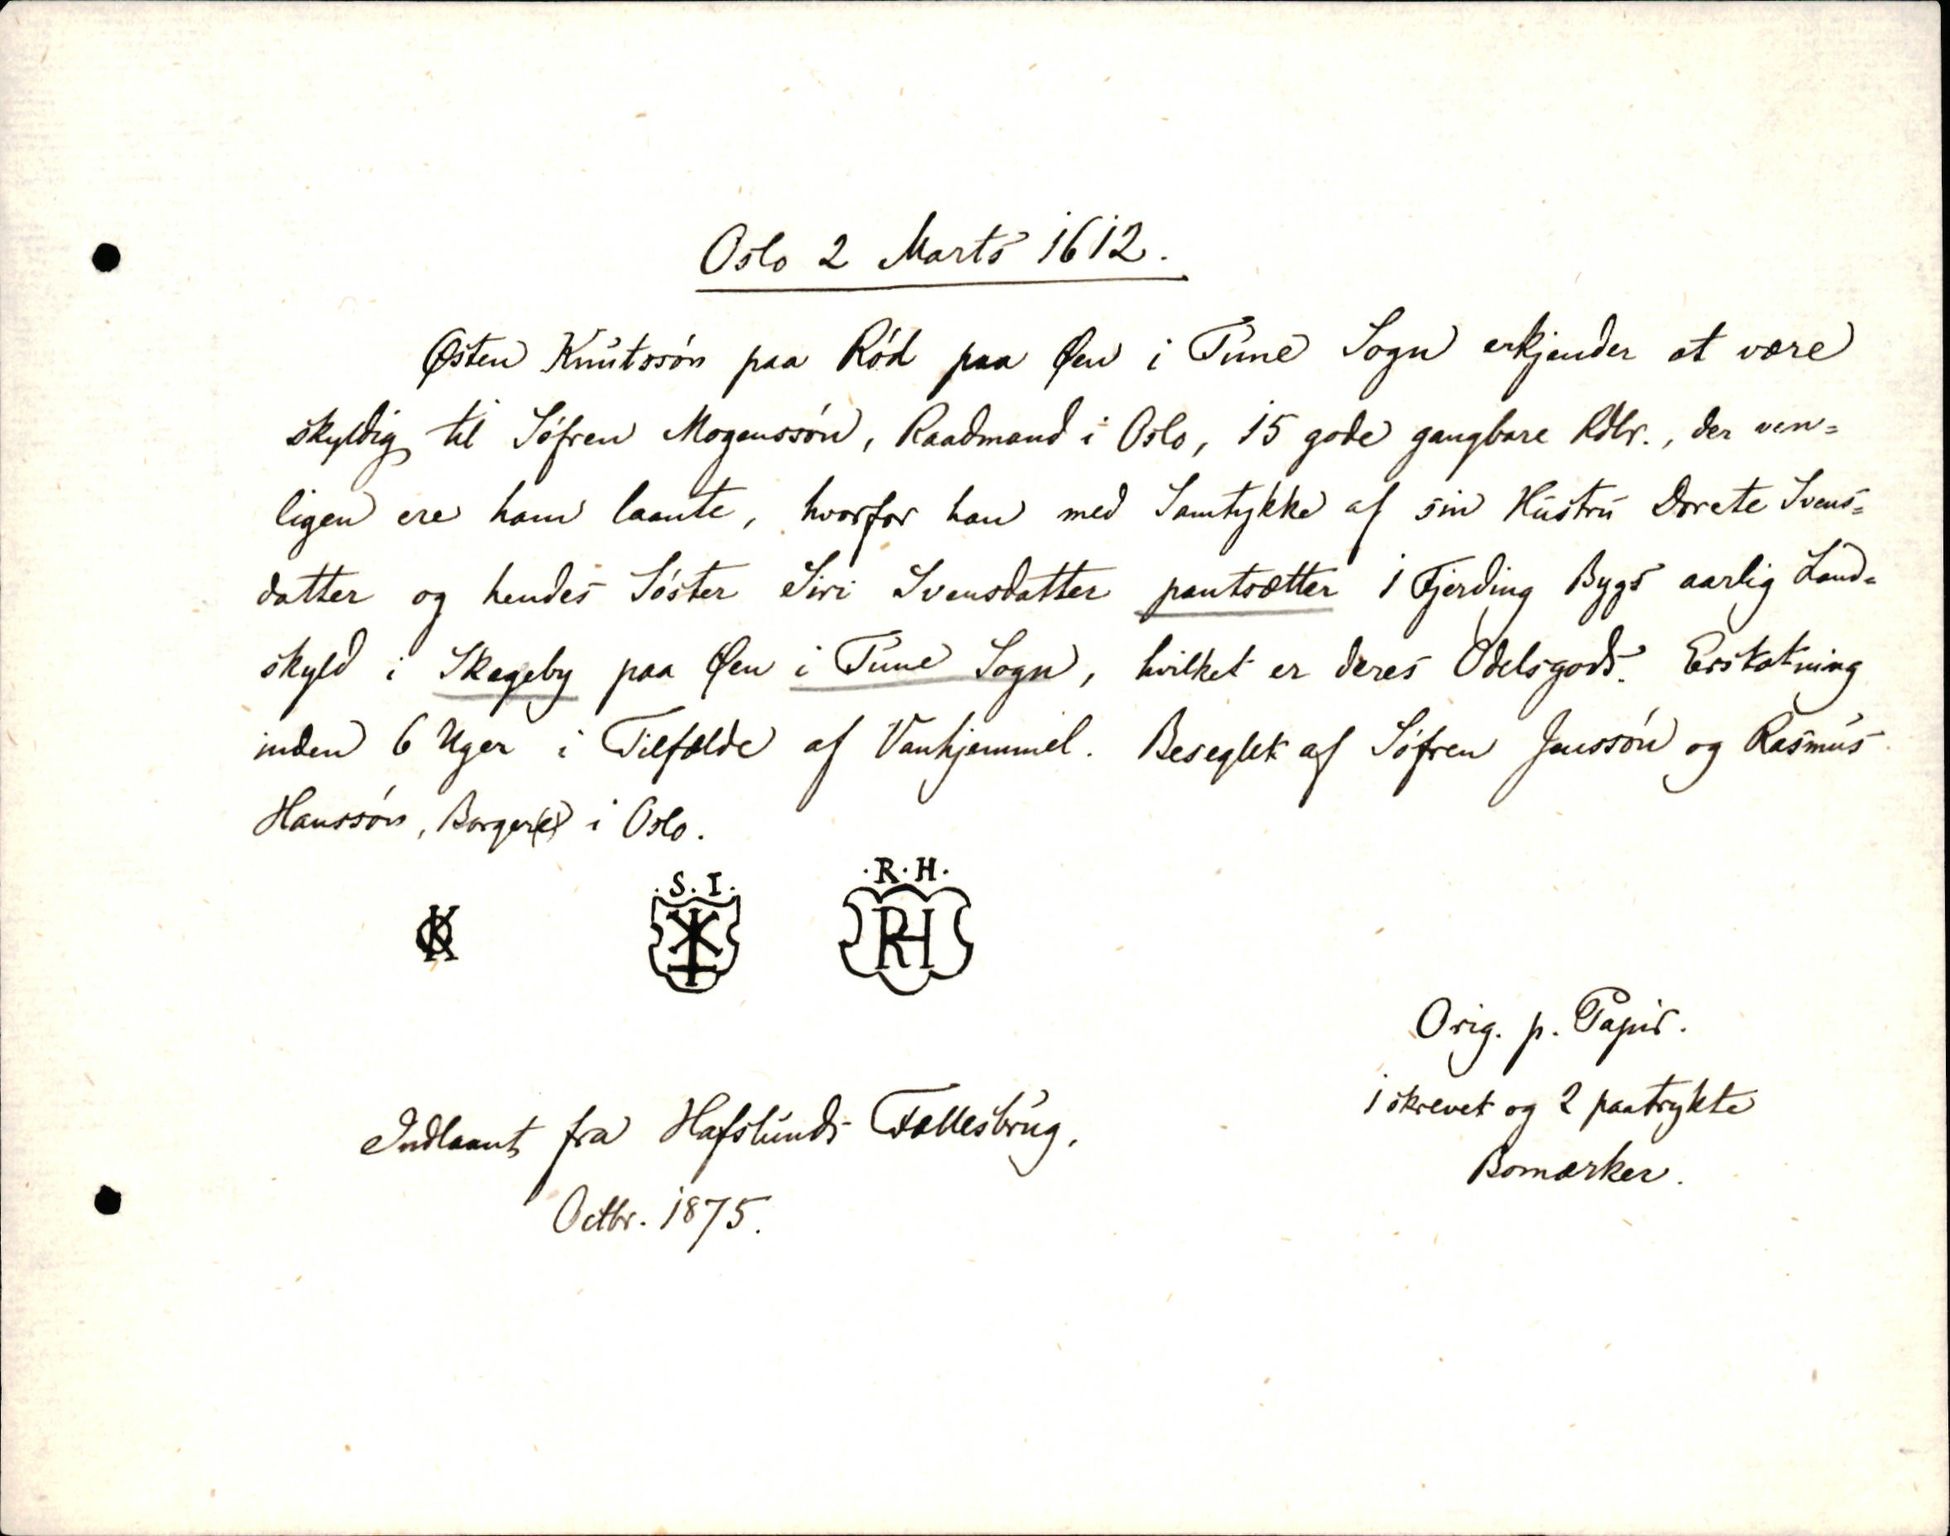 Oslo 2 Marts 1612.
Østen Knutssön paa Röd paa Øen i Tune Sogn erkjender at være
skyldig til Söfren Mogenssön, Raadmand i Oslo, 15 gode gangbare Rdlr., der ven=
ligen ere ham laante, hvorfor han med Samtykke af sin Hustru Dorete Svens=
datter og hendes Söster Siri Svensdatter pantsætter 1 Fjerding Bygs aarlig Land=
skyld i Skageby paa Øen i Tune Sogn, hvilket er deres Odelsgods. Erstatning
inden 6 Uger i Tilfælde af Vanhjemmel. Beseglet af Söfren Jenssön og Rasmus
Hanssön, Borger(e) i Oslo.
·S.I. ·R·H·
OK RH
Orig. p. Papir.
1 skrevet og 2 paatrykte
Bomærker.
Indlaant fra Hafslunds Fællesbrug,
Octbr. 1875.